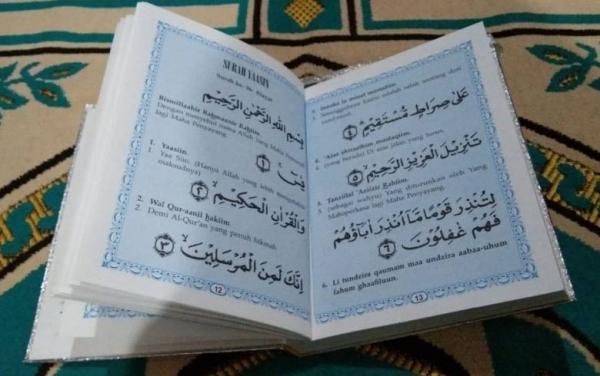 SURAH YAASIN
بِسْمِ اللهِ الرَّحْمٰنِ الرَّحِيْمِ
Bismillaahir Rahmaanir Rahiim.
Dengan menyebut nama Allah yang Maha
lagi Maha Penyayang.
يٰسۤ ۝١
1. Yaasiin.
1. Yaa Siin. (Hanya Allah yang lebih mengetahui
maksudnya)
وَالْقُرْاٰنِ الْحَكِيْمِ ۝٢
2. Wal Qur-aanil hakiim.
2. Demi Al-Qur'an yang penuh hikmah.
اِنَّكَ لَمِنَ الْمُرْسَلِيْنَ ۝٣
12
3. Innaka la minal mursaliin.
3. Sesungguhnya kamu adalah salah seorang dari
عَلٰى صِرَاطٍ مُّسْتَقِيْمٍ ۝٤
4. 'Alaa shiraathim mustaqiim.
4. (yang berada) Di atas jalan yang lurus.
تَنْزِيْلَ الْعَزِيْزِ الرَّحِيْمِ ۝٥
5. Tanziilal 'Aziizir Rahiim.
5. (sebagai wahyu) Yang diturunkan oleh Yang
Mahaperkasa lagi Maha Penyayang.
لِتُنْذِرَ قَوْمًا مَّآ اُنْذِرَ اٰبَاۤؤُهُمْ
فَهُمْ غٰفِلُوْنَ ۝٦
6. Li tundzira qaumam maa undzira aabaa-uhum
fahum ghaafiluun.
13